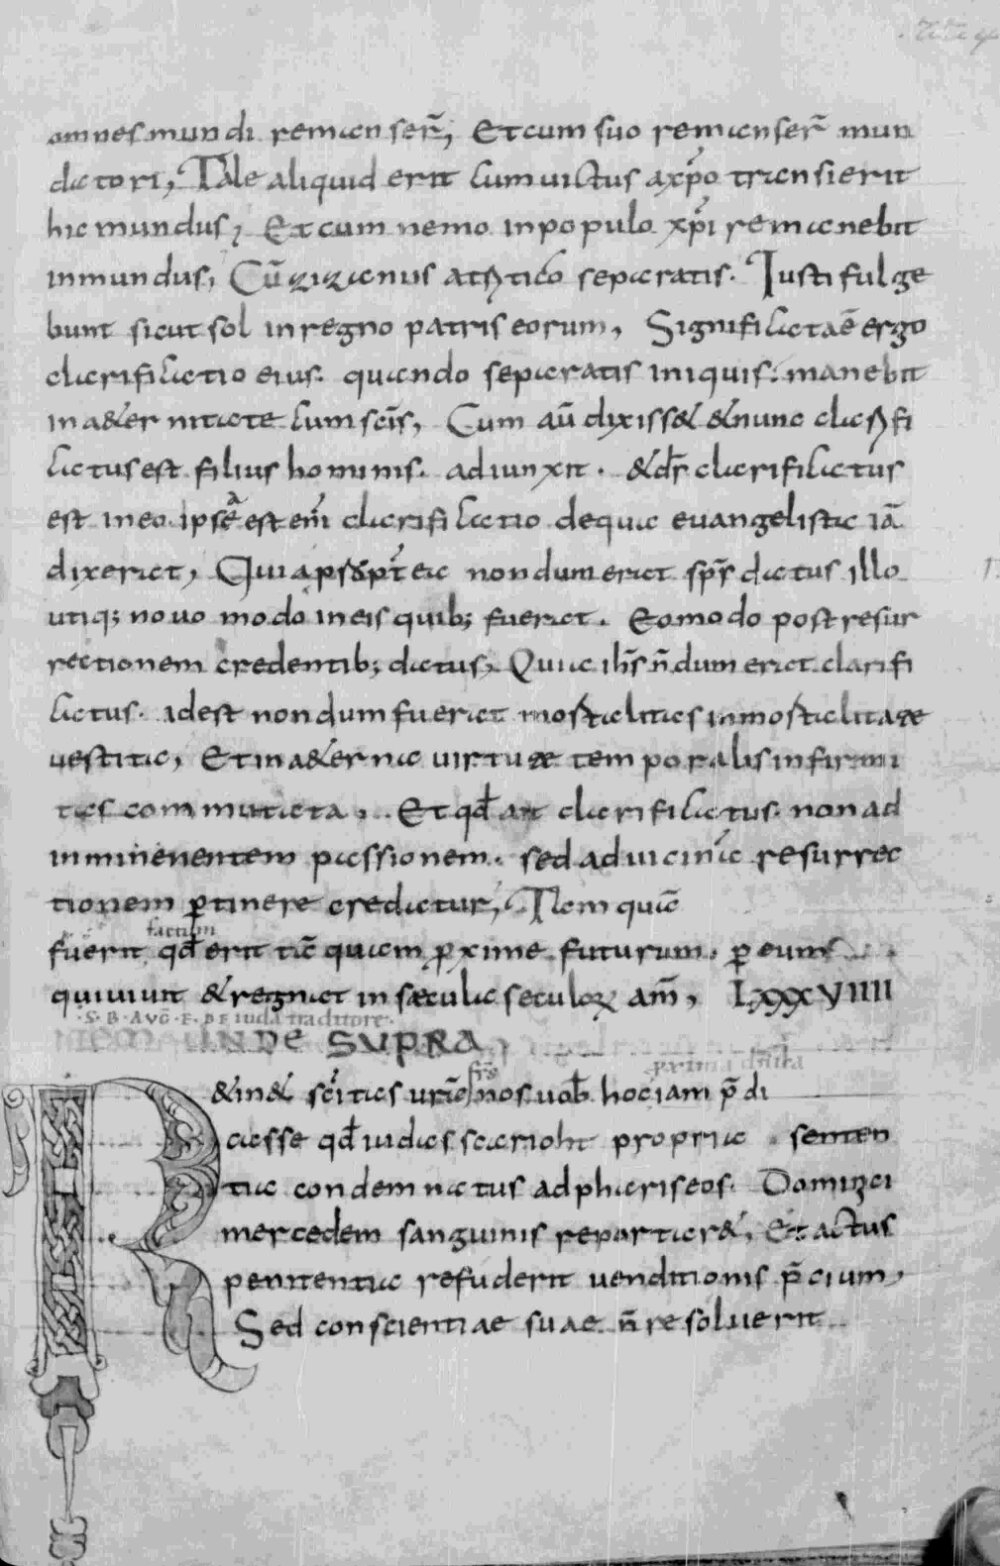 omnes mundi remanser̄; Et cum suo remanser̄ mun
datori, Tale aliquid erit cum uictus a xp̄o transierit
hic mundus; Et cum nemo in populo xp̄i remanebit
inmundus, Cū zizaniis a tritico separatis. Iusti fulge
bunt sicut sol in regno patris eorum, Significataē ergo
clarificatio eius. quando separatis iniquis. manebit
in aeternitate cum sc̄is, Cum aū dixisset & nunc clarifi
catus est filius hominis. adiunxit. & d̄s clarificatus
est in eo. ipsa est eni clarificatio de qua euangelista iā
dixerat, Quia sps ppt ea nondum erat sps datus illo
utiq; nouo modo in eis quib; fuerat. Eo modo post resur
rectionem credentib; datus, Quia ih̄s n̄dum erat clarifi
catus. idest nondum fuerat mortalitas inmortalitate
uestita, Et in aeterna uirtute temporalis infirmi
tas commutata, Et qd̄ ait clarificatus. non ad
inminentem passionem. sed ad uicinā resurrec
tionem p̄tinere credatur, Nem quā
factum
fuerit qd̄ erit tā quam pxime futurum. p eum
qui uiuit & regnat in saecula seculoꝝ am̄, LXXXVIIII
S. B. AVḠ. E. DE iuda traditore.
UNDE SUPRA
frs̄ prima
&in& sc̄itas urā nos uob̄ hoc iam p̄ di
casse qd̄ iudas scarioht propria senten
tia condemnatus ad phariseos. Domini
mercedem sanguinis reportar&, Et actus
penitentia refuderit uenditionis p̄cium,
Sed conscientiae suae n̄ resoluerit